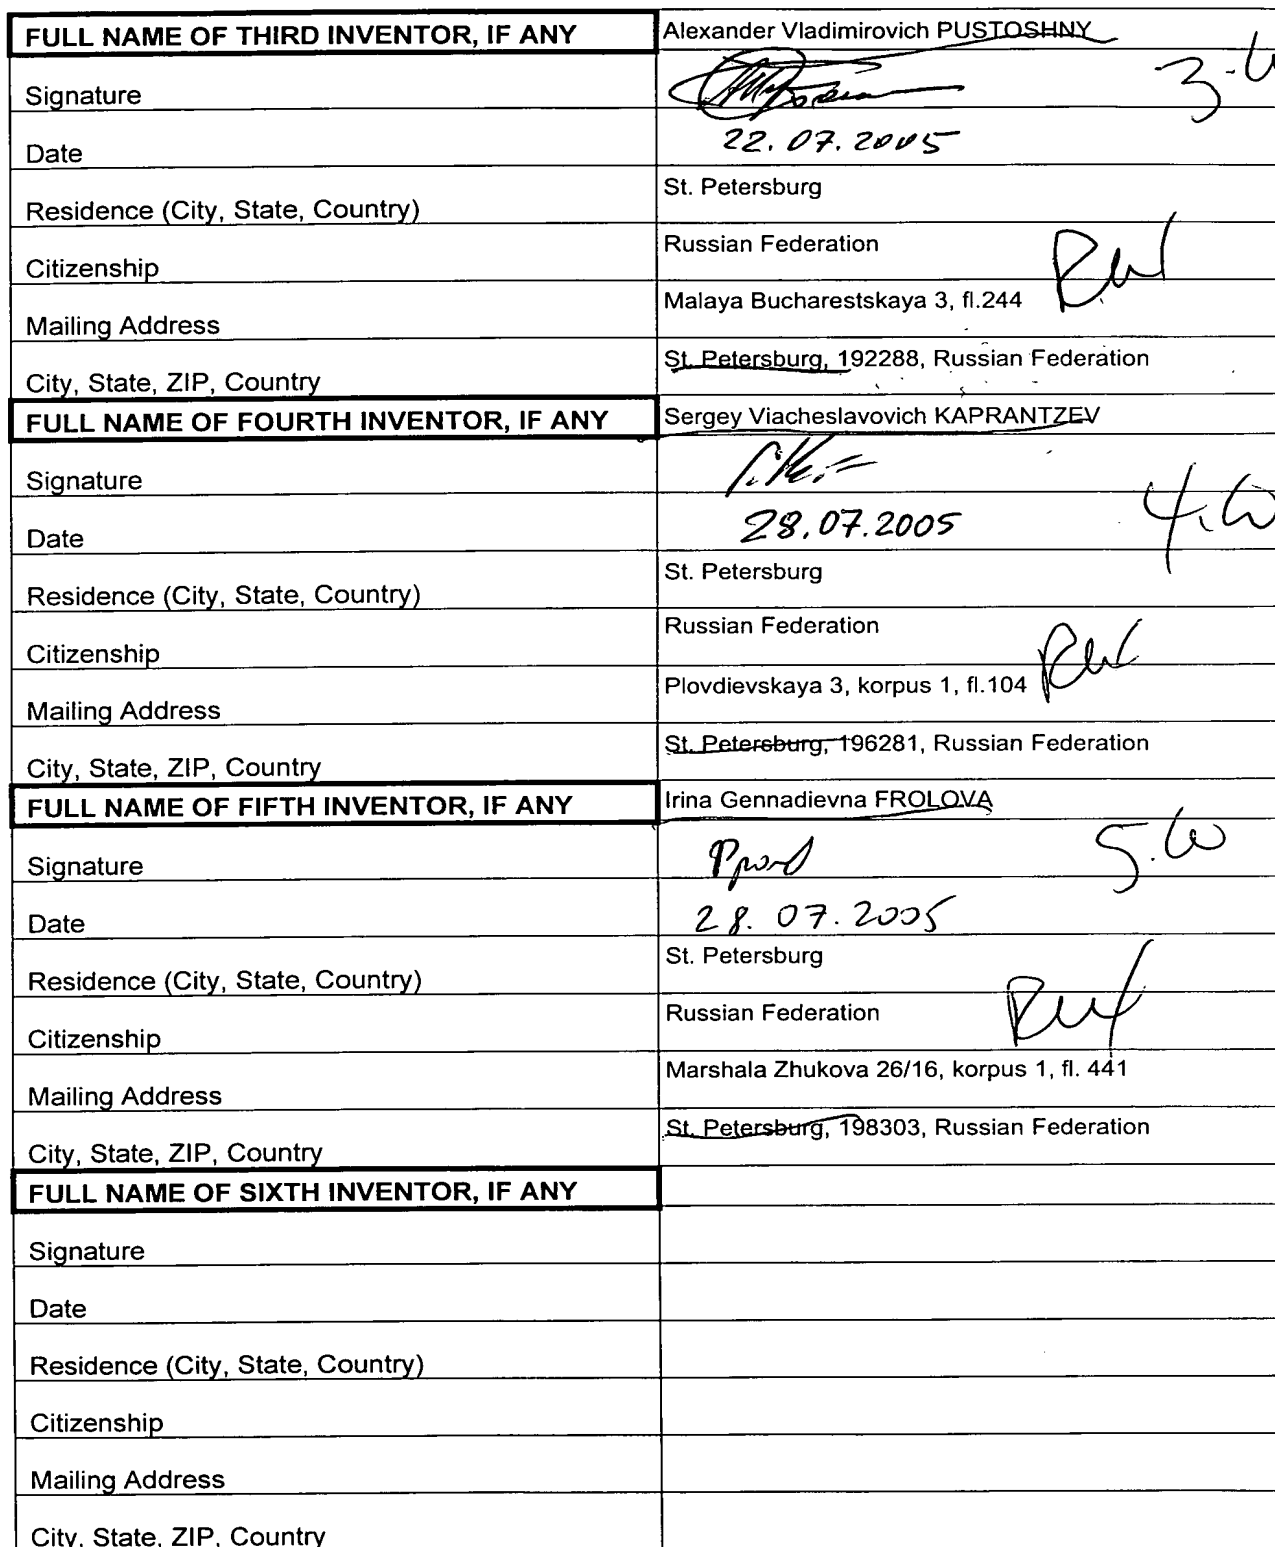 FULL NAME OF THIRD INVENTOR, IF ANY Alexander Vladimirovich PUSTOSHNY
Signature
Date 22.07.2005
Residence (City, State, Country) St. Petersburg
Citizenship Russian Federation
Mailing Address Malaya Bucharestskaya 3, fl.244
City, State, ZIP, Country St. Petersburg, 192288, Russian Federation
FULL NAME OF FOURTH INVENTOR, IF ANY Sergey Viacheslavovich KAPRANTZEV
Signature
Date 28.07.2005
Residence (City, State, Country) St. Petersburg
Citizenship Russian Federation
Mailing Address Plovdievskaya 3, korpus 1, fl.104
City, State, ZIP, Country St. Petersburg, 196281, Russian Federation
FULL NAME OF FIFTH INVENTOR, IF ANY Irina Gennadievna FROLOVA
Signature
Date 28.07.2005
Residence (City, State, Country) St. Petersburg
Citizenship Russian Federation
Mailing Address Marshala Zhukova 26/16, korpus 1, fl. 441
City, State, ZIP, Country St. Petersburg, 198303, Russian Federation
FULL NAME OF SIXTH INVENTOR, IF ANY
Signature
Date
Residence (City, State, Country)
Citizenship
Mailing Address
City, State, ZIP, Country